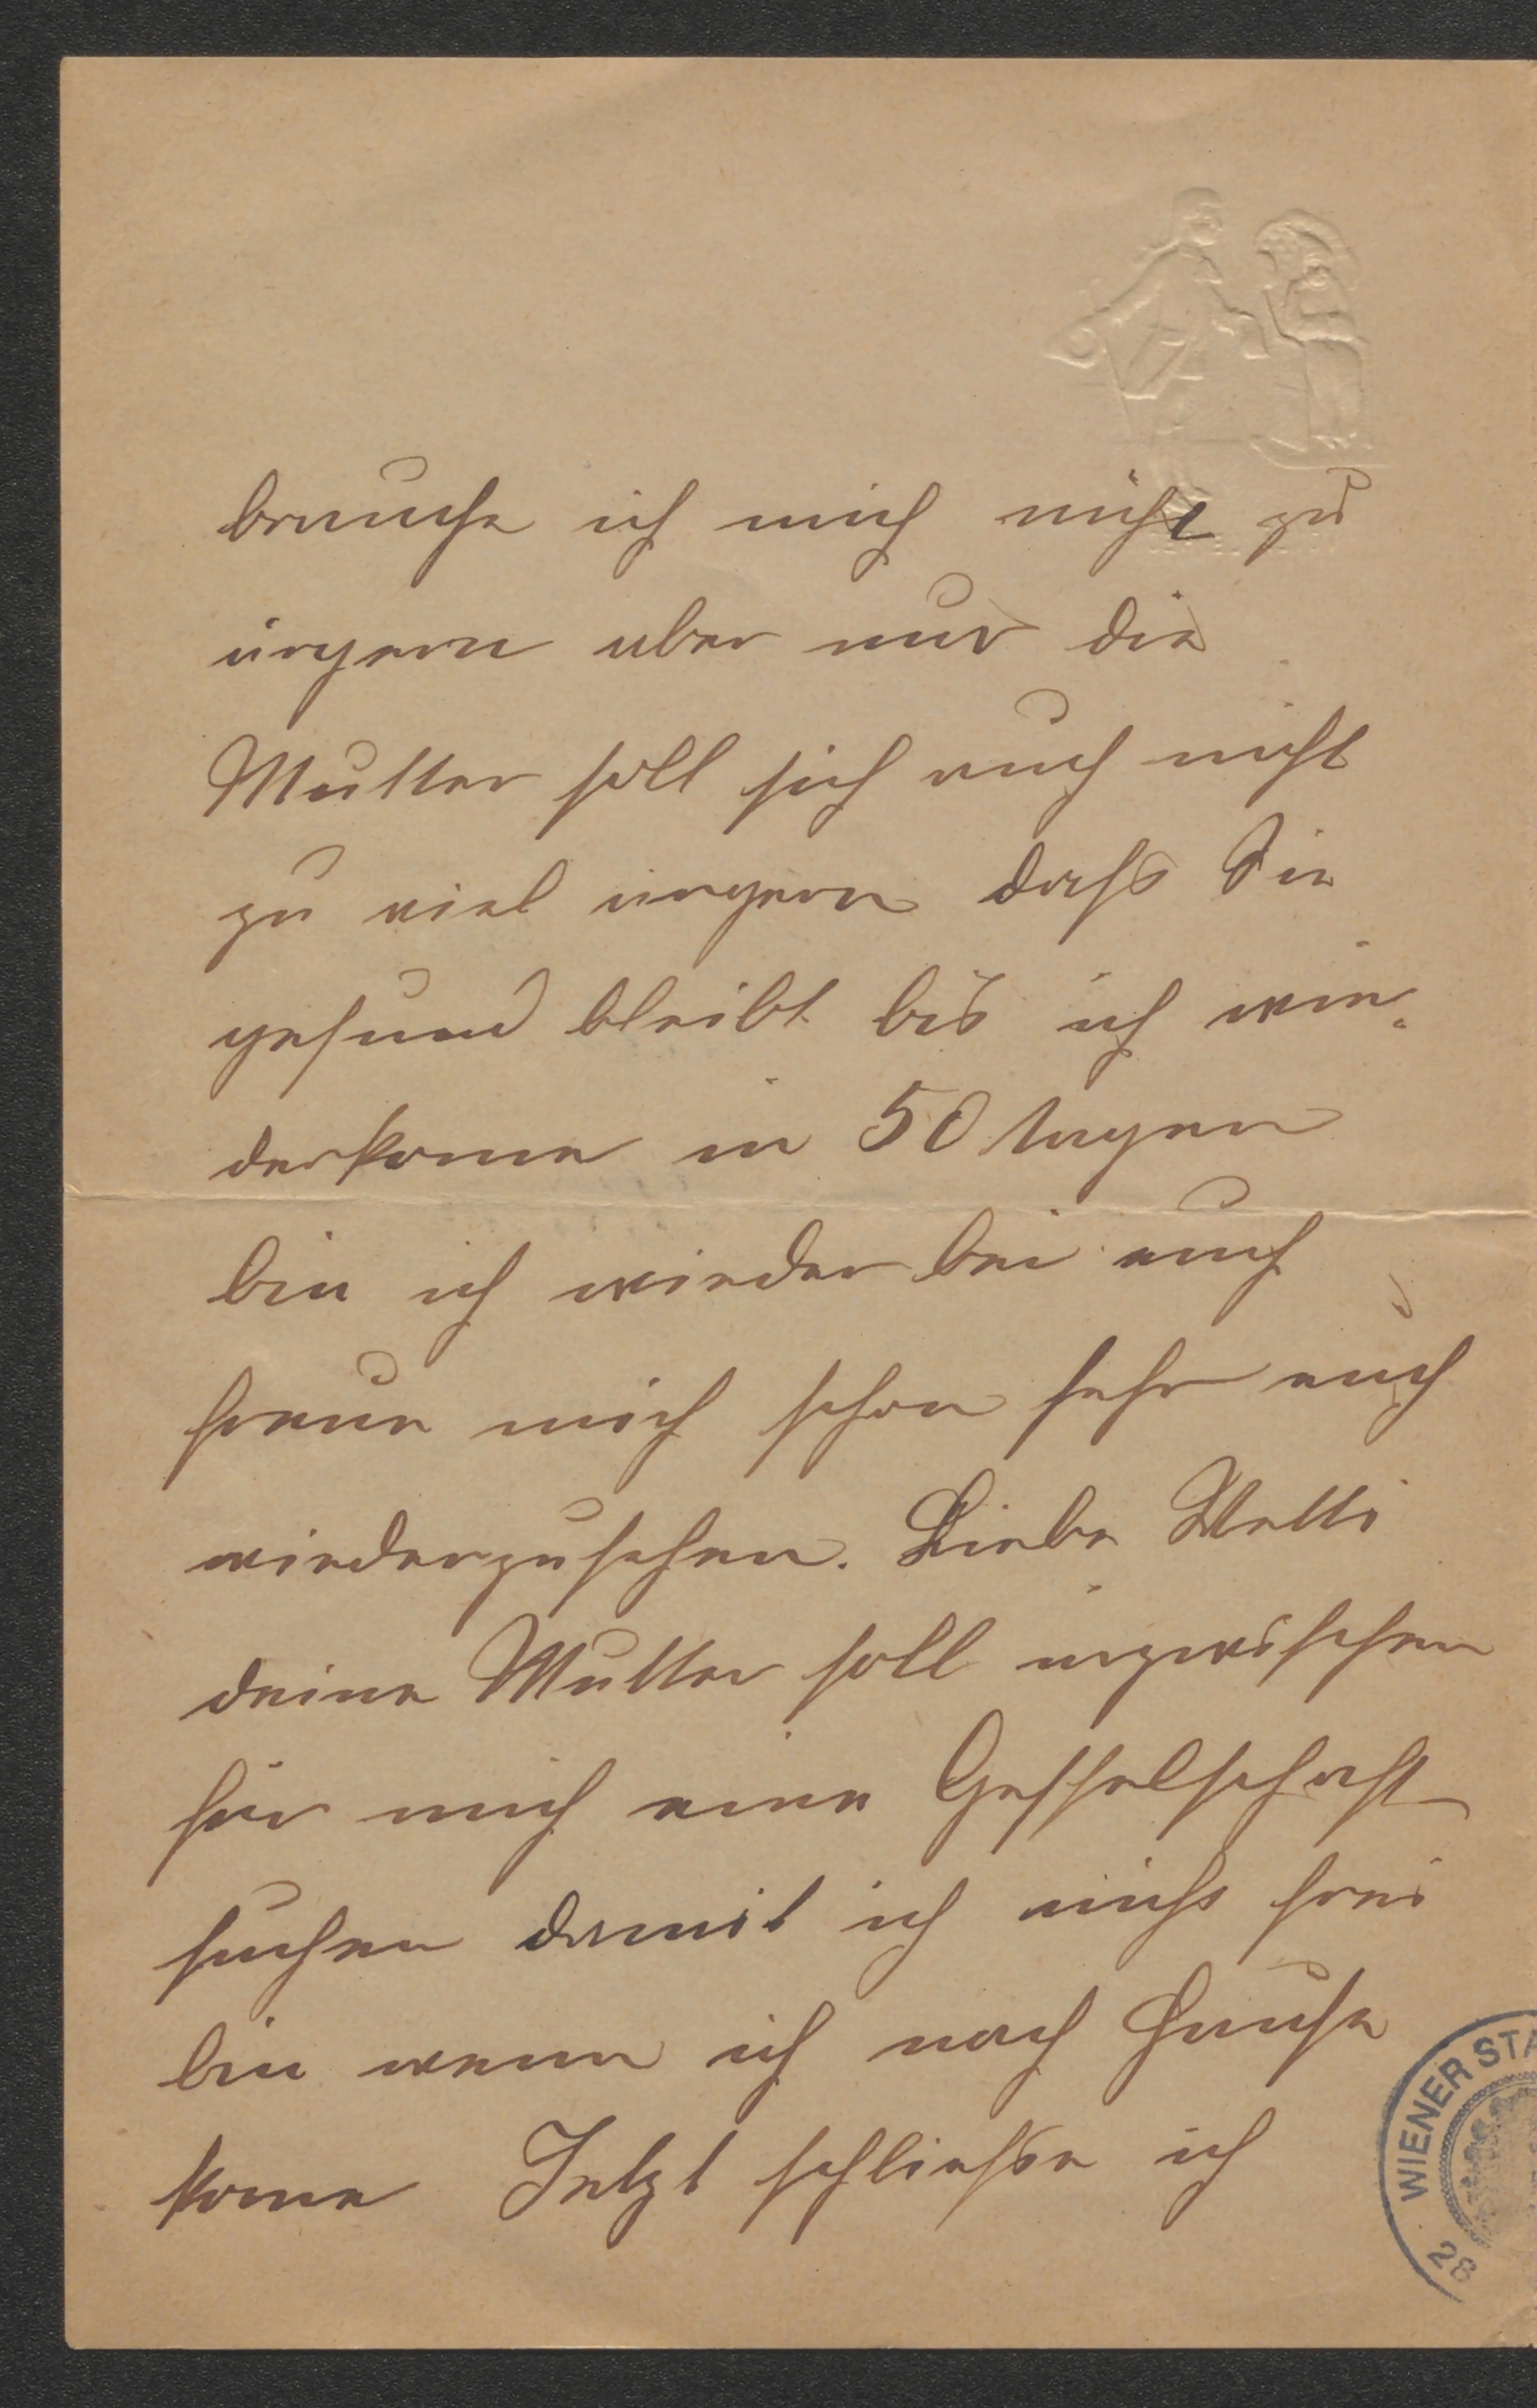 brauche ich mich nicht zu
ärgern aber nur die
Mutter soll sich auch nicht
zu viel ärgern dass Sie
gesund bleibt bis ich wie-
derkome in 50 tagen
bin ich wieder bei euch
freue mich schon sehr euch
wiederzusehen. Liebe Wetti
deine Mutter soll inzwischen
für mich eine Gesselschaft
suchen damit ich nicht frei
bin wenn ich nach Hause
kome Jetzt schliesse ich
WIENER STA
28